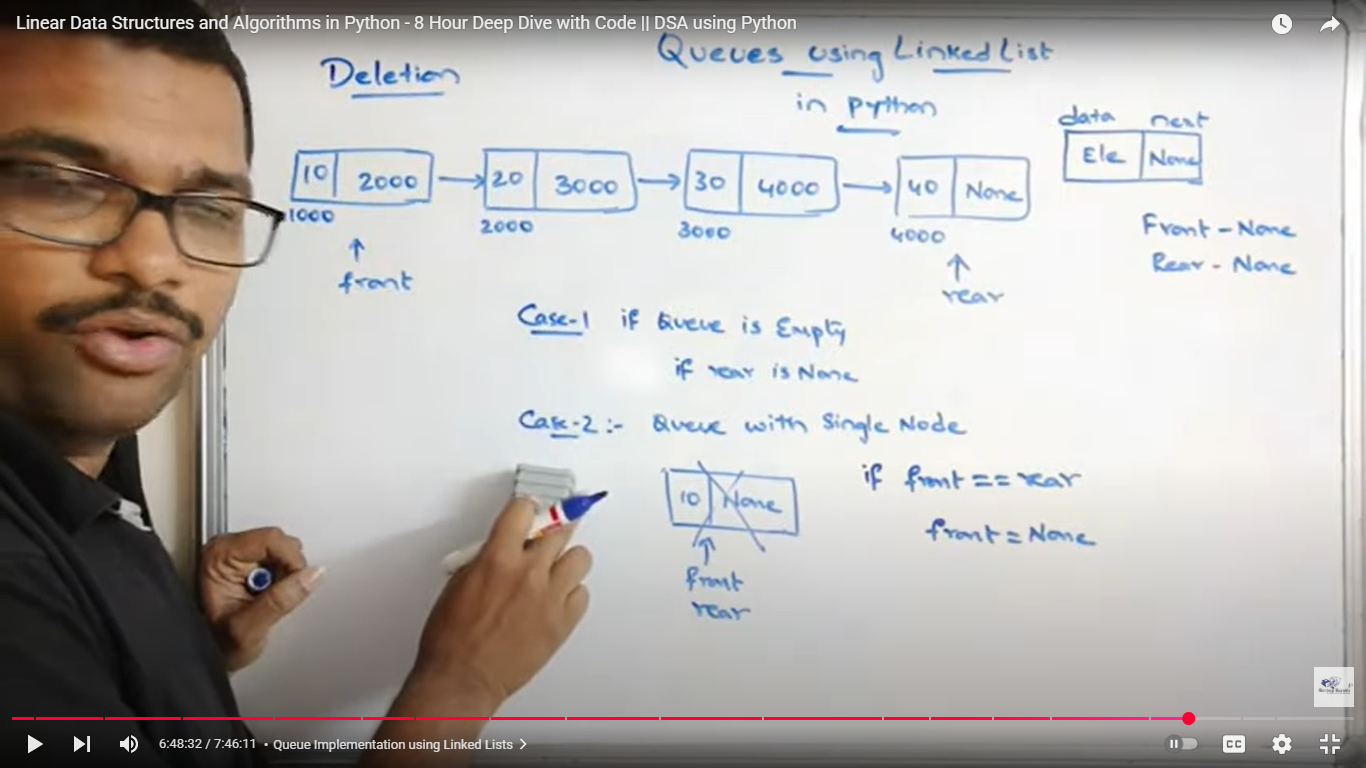 Linear Data Structures and Algorithms in Python - 8 Hour Deep Dive with Code || DSA using Python
Deletion
Queues using Linked List
in python
data next
Ele None
10 2000
20 3000
30 4000
40 None
1000
2000
3000
4000
front
rear
Front - None
Rear - None
Case-1 if Queue is Empty
if rear is None
Case-2 :- Queue with Single Node
10 None
if front == rear
front = None
front
rear
6:48:32 / 7:46:11 • Queue Implementation using Linked Lists
CC